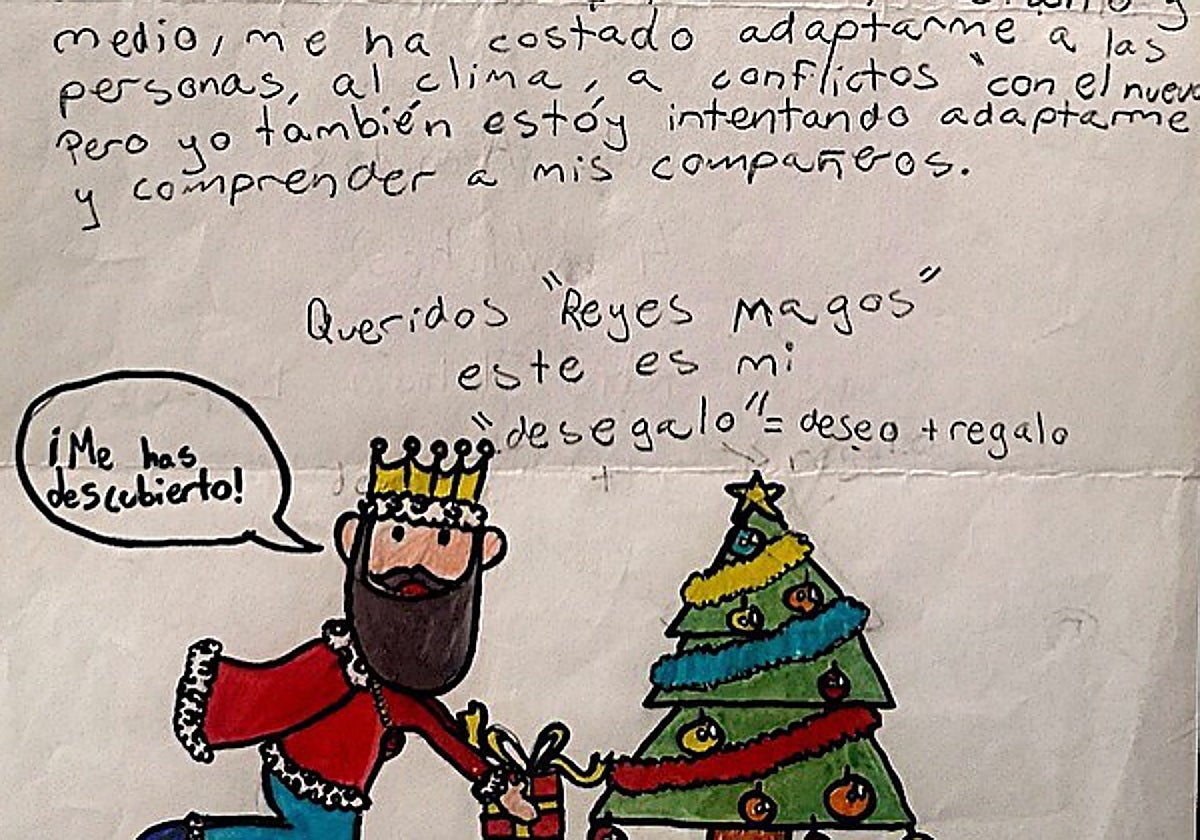 medio, me ha costado adaptarme a las
personas, al clima, a conflictos "con el nuevo
Pero yo también estóy intentando adaptarme
y comprender a mis compañeros.
Queridos "Reyes magos"
este es mi
"desegalo" = deseo + regalo
¡Me has
descubierto!